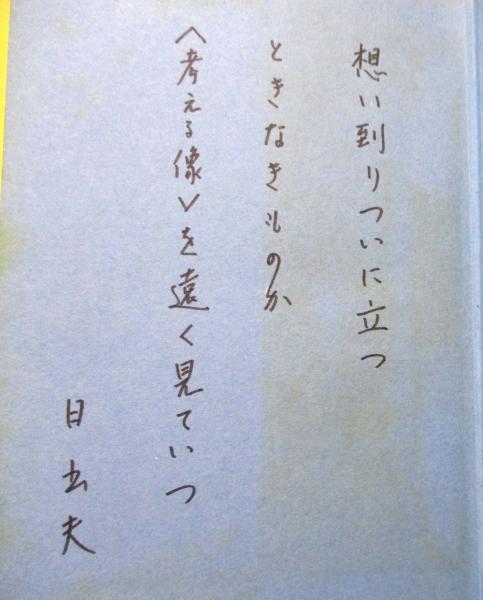 想い到りついに立つ
ときなきものか
〈考える像〉を遠く見ていつ
日出夫